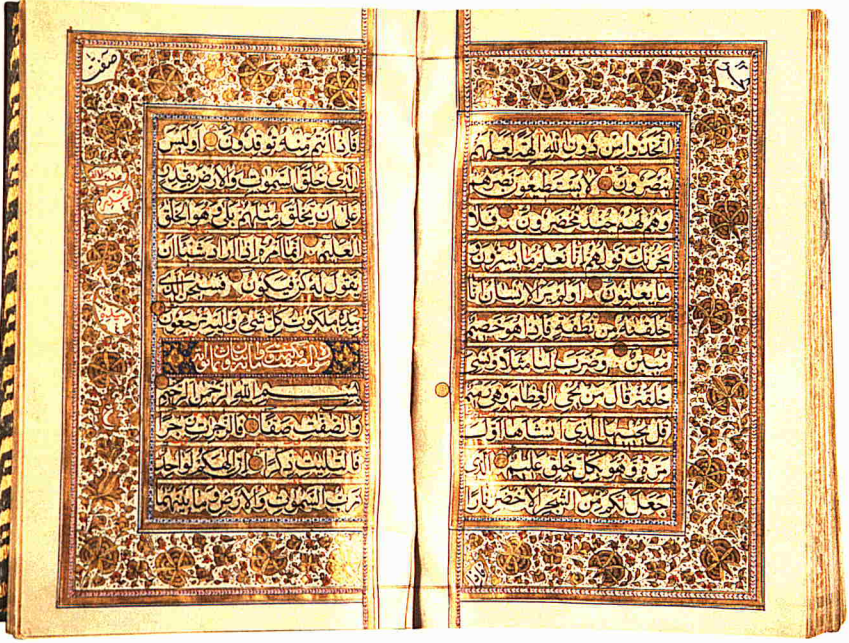 اتخذوا من دون الله الهة لعلهم
ينصرون لا يستطيعون نصرهم
وهم لهم جند محضرون فلا
يحزنك قولهم انا نعلم ما يسرون و
ما يعلنون اولم ير الانسان انا
خلقنه من نطفة فاذا هو خصيم
مبين وضرب لنا مثلا ونسي
خلقه قال من يحي العظام وهي رميم
قل يحييها الذي انشاها اول
مرة وهو بكل خلق عليم الذي
جعل لكم من الشجر الاخضر نارا
صفت
فاذا انتم منه توقدون اوليس
الذي خلق السموت والارض بقدر
على ان يخلق مثلهم بلى وهو الخلق
العليم انما امره اذا اراد شيئا ان
يقول له كن فيكون فسبحن الذي
بيده ملكوت كل شيء واليه ترجعون
بسم الله الرحمن الرحيم
والصفت صفا فالزجرت زجرا
فالتليت ذكرا ان الهكم لواحد
رب السموت والارض وما بينهما